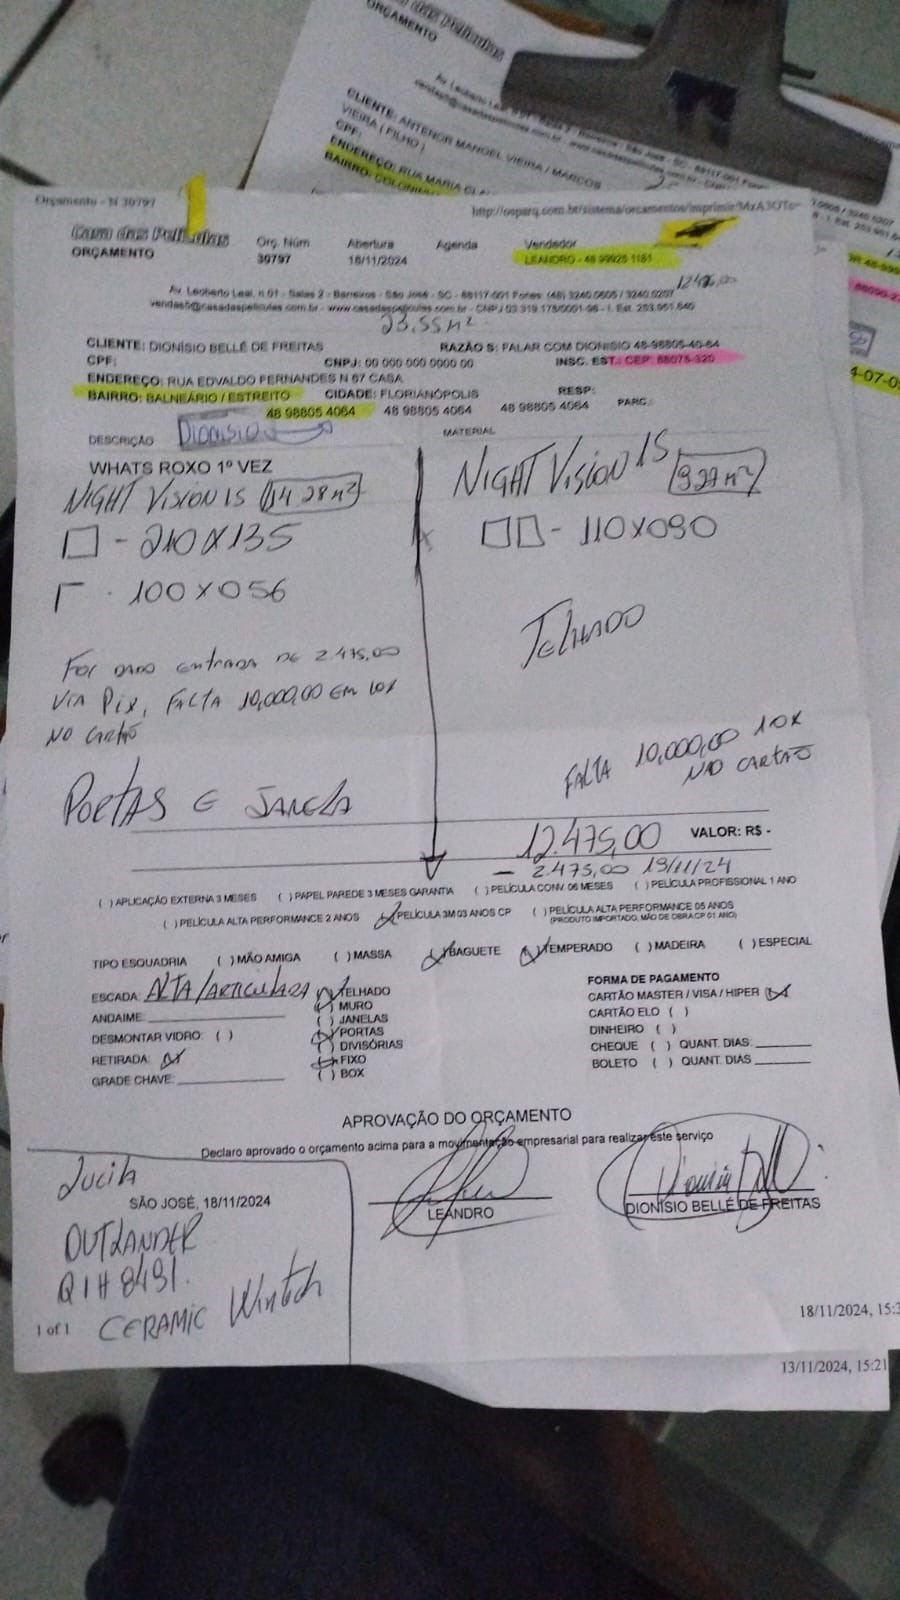 Casa das Películas
ORÇAMENTO
Av. Leoberto Leal, n.01 - Salas 2 - Barreiros - São José - SC - 88117-001
CLIENTE: ANTENOR MANOEL VIEIRA / MARCOS
VIEIRA ( FILHO )
CPF:
ENDEREÇO: RUA MARIA
BAIRRO:
Orçamento - N 30797
Casa das Películas
ORÇAMENTO
Orç. Núm
30797
Abertura
18/11/2024
Agenda
Vendedor
LEANDRO - 48 99925 1181
Av. Leoberto Leal, n.01 - Salas 2 - Barreiros - São José - SC - 88117-001 Fones: (48) 3240.0605 / 3240.0207
vendas5@casadaspeliculas.com.br - www.casadaspeliculas.com.br - CNPJ 03.319.178/0001-98 - I. Est. 253.951.640
23.55 m²
CLIENTE: DIONÍSIO BELLÉ DE FREITAS RAZÃO S: FALAR COM DIONISIO 48-98805-40-64
CPF: CNPJ: 00 000 000 0000 00 INSC. EST.: CEP: 88075-320
ENDEREÇO: RUA EDVALDO FERNANDES N 67 CASA
BAIRRO: BALNEÁRIO / ESTREITO CIDADE: FLORIANÓPOLIS RESP:
48 98805 4064 48 98805 4064 48 98805 4064 PARC.:
DESCRIÇÃO DIONISIO MATERIAL
WHATS ROXO 1º VEZ
NIGHT VISION 15 14.28 m²
210 X 135
100 X 056
FOI DADO ENTRADA DE 2.475,00
VIA PIX, FALTA 10,000,00 EM 10X
NO CARTÃO
PORTAS E JANELA
NIGHT VISION 15 9.27 m²
110 X 090
TELHADO
FALTA 10,000,00 10X
NO CARTÃO
12.475,00 VALOR: R$ -
- 2.475,00 19/11/24
( ) APLICAÇÃO EXTERNA 3 MESES ( ) PAPEL PAREDE 3 MESES GARANTIA ( ) PELÍCULA CONV. 06 MESES ( ) PELÍCULA PROFISSIONAL 1 ANO
( ) PELÍCULA ALTA PERFORMANCE 2 ANOS (X) PELÍCULA 3M 03 ANOS CP ( ) PELÍCULA ALTA PERFORMANCE 05 ANOS
(PRODUTO IMPORTADO, MÃO DE OBRA CP 01 ANO)
TIPO ESQUADRIA ( ) MÃO AMIGA ( ) MASSA (X) BAGUETE (X) TEMPERADO ( ) MADEIRA ( ) ESPECIAL
ESCADA: ALTA / ARTICULADA
ANDAIME:
DESMONTAR VIDRO: ( )
RETIRADA: (X)
GRADE CHAVE:
(X) TELHADO
( ) MURO
( ) JANELAS
(X) PORTAS
( ) DIVISÓRIAS
(X) FIXO
( ) BOX
FORMA DE PAGAMENTO
CARTÃO MASTER / VISA / HIPER (X)
CARTÃO ELO ( )
DINHEIRO ( )
CHEQUE ( ) QUANT. DIAS:
BOLETO ( ) QUANT. DIAS
APROVAÇÃO DO ORÇAMENTO
Declaro aprovado o orçamento acima para a movimentação empresarial para realizar este serviço
SÃO JOSÉ, 18/11/2024
LEANDRO
DIONÍSIO BELLÉ DE FREITAS
OUTLANDER
CERAMIC
1 of 1
18/11/2024, 15:3
13/11/2024, 15:21